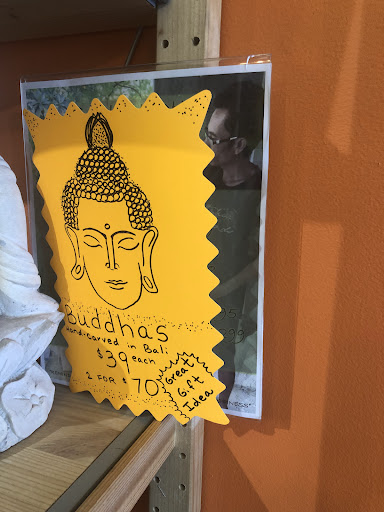 Buddhas
handcarved in Bali
$39 each
2 FOR $70
Great
Gift
Idea